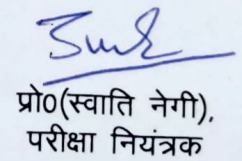 प्रो0(स्वाति नेगी),
परीक्षा नियंत्रक